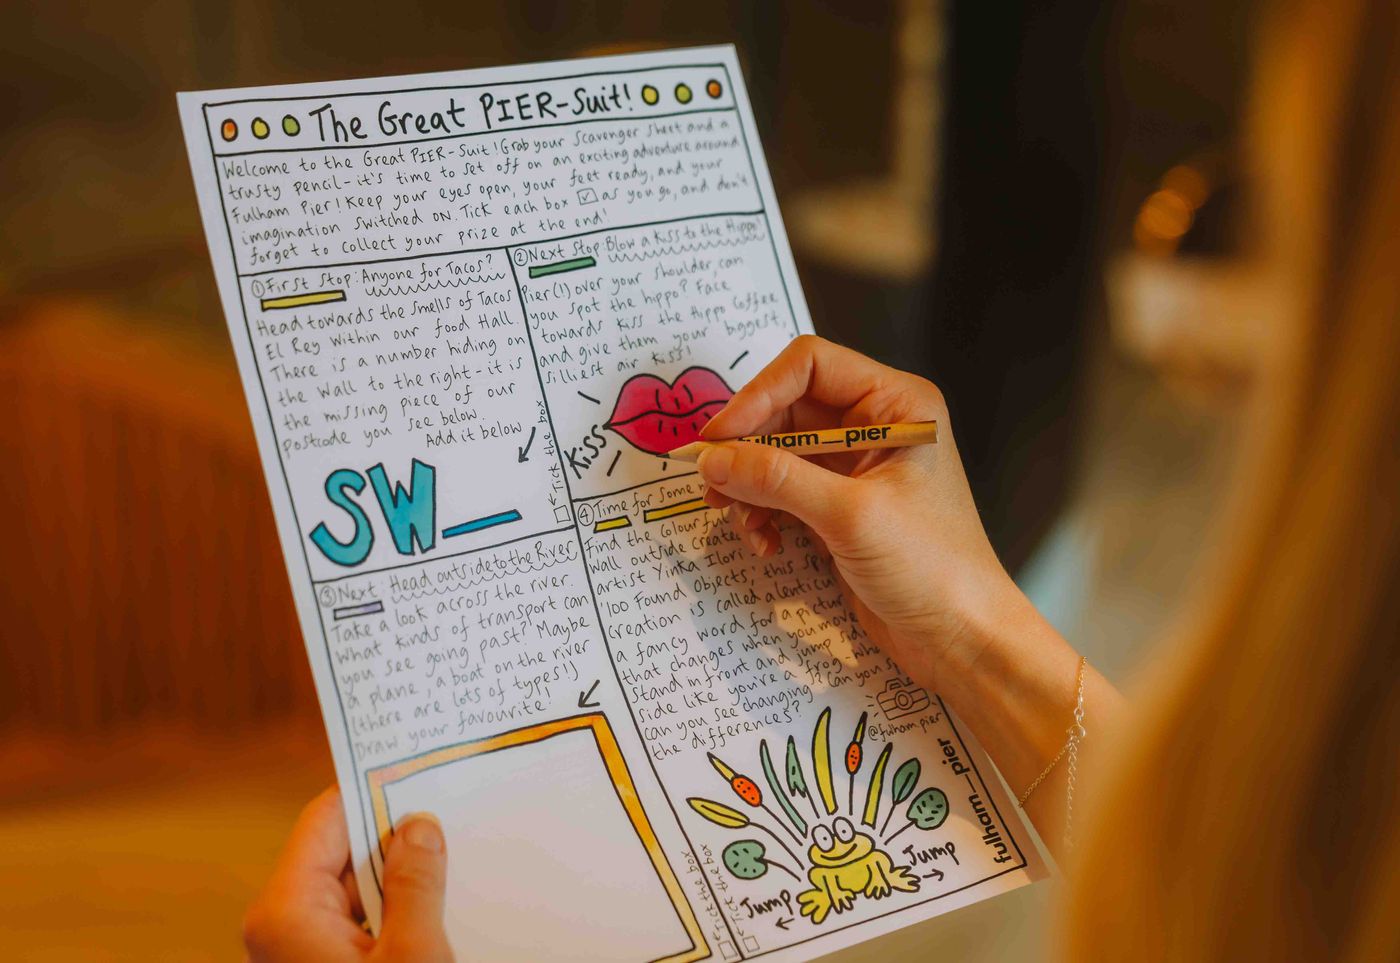 The Great PIER-Suit!
Welcome to the Great PIER-Suit! Grab your Scavenger sheet and a
trusty pencil - it's time to set off on an exciting adventure around
Fulham Pier! Keep your eyes open, your feet ready, and your
imagination switched on. Tick each box as you go, and don't
forget to collect your prize at the end!
① First Stop: Anyone for Tacos?
Head towards the smells of Tacos
El Rey within our food Hall.
There is a number hiding on
the wall to the right - it is
the missing piece of our
postcode you see below.
Add it below
SW_
② Next Stop: Blow a Kiss to the Hippo!
Pier(!) over your shoulder, can
you spot the hippo? Face
towards Kiss the Hippo Coffee
and give them your biggest,
silliest air kiss!
Kiss
← Tick the box
fulham_pier
③ Next: Head outside to the River
Take a look across the river.
What kinds of transport can
you see going past? Maybe
a plane, a boat on the river
(there are lots of types!)
Draw your favourite!
← Tick the box
④ Time for Some
Find the colourful
Wall outside
artist Yinka Ilori
'100 Found Objects,' this
creation is called a
a fancy word for a
that changes when you move
Stand in front and jump
side like you're a frog -
can you see changing? Can you
the differences?
@fulham pier
Jump
Jump
← Tick the box
fulham_pier